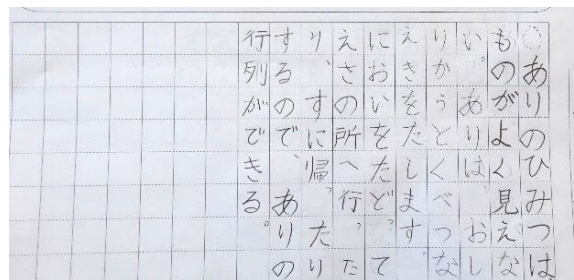 ○ありのひみつは
ものがよく見えな
い。ありは、おし
りかうとくべつな
えきをたします。
においをたどて
えさの所へ行、た
り、すに帰、たり
するので、ありの
行列ができる。